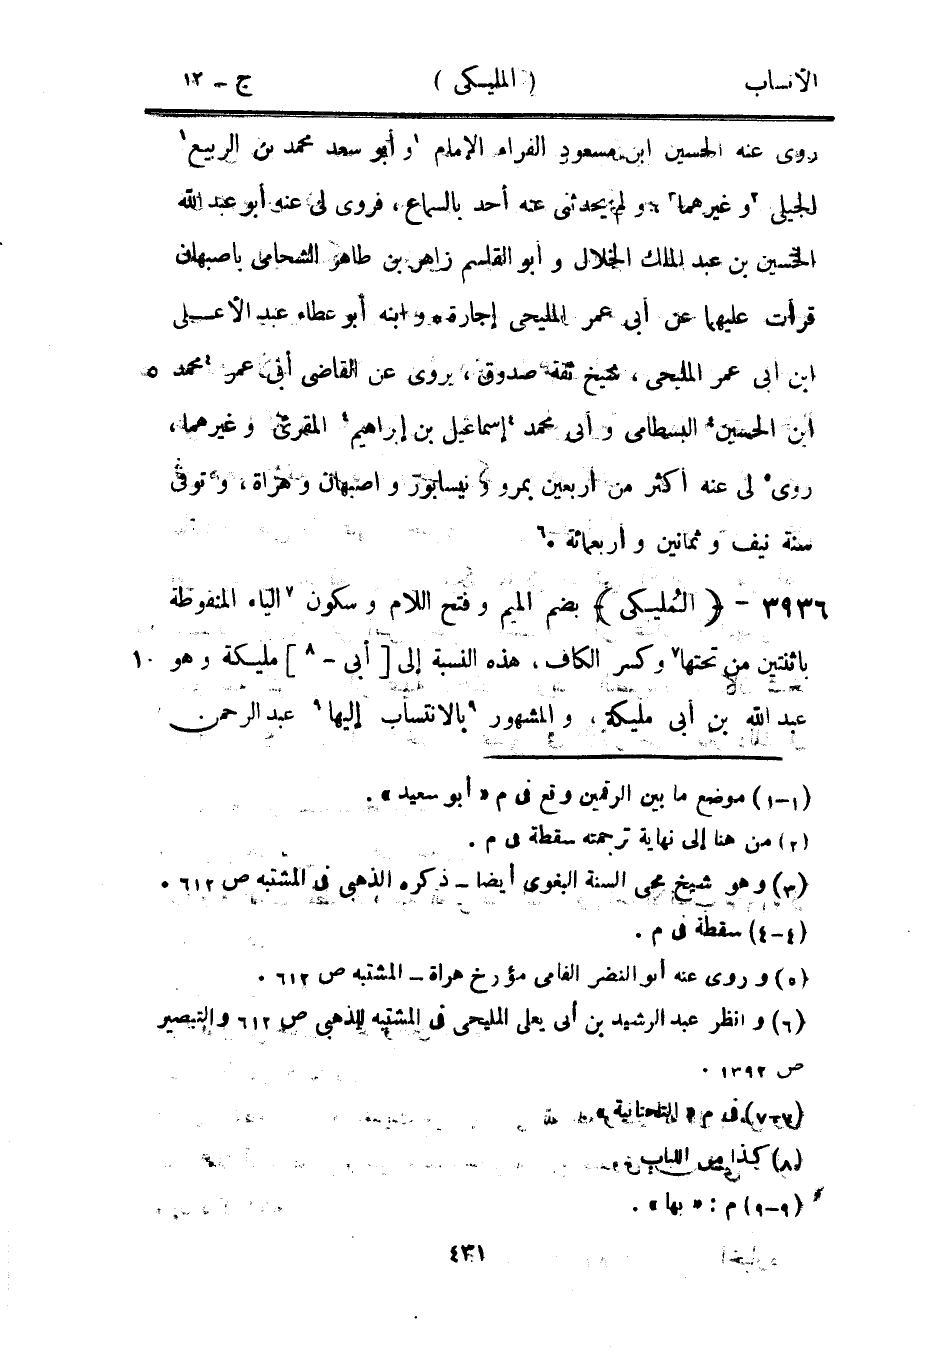 الأنساب ( المليكى ) ج - ١٢
روى عنه الحسين ابن مسعود الفراء الإمام ١و أبو سعد محمد بن الربيع١
الجيلى ٢و غيرهما٣ ، و لم يحدثنى عنه أحد بالسماع ، فروى لى عنه أبو عبد الله
الحسين بن عبد الملك الخلال و أبو القاسم زاهر بن طاهر الشحامى باصبهان
قرأت عليهما عن أبى عمر المليحى إجازة ٠ و ابنه أبو عطاء عبد الأعلى
ابن ابى عمر المليحى ، شيخ ثقة صدوق ، يروى عن القاضى أبى عمر ٤محمد ٥
ابن الحسين٤ البسطامى و أبى محمد ٤إسماعيل بن إبراهيم٤ المقرئ و غيرهما ،
روى٥ لى عنه أكثر من أربعين بمرو و نيسابور و اصبهان و هراة ، و توفى
سنة نيف و ثمانين و أربعمائة ٦٠
٣٩٣٦ - ﴿ المُليكى ﴾ بضم الميم و فتح اللام و سكون ٧الياء المنقوطة
باثنتين من تحتها٧ و كسر الكاف ، هذه النسبة إلى [ أبى - ٨ ] مليكة و هو ١٠
عبد الله بن أبى مليكة ، و المشهور ٩بالانتساب إليها٩ عبد الرحمن
(١-١) موضع ما بين الرقمين وقع فى م « أبو سعيد » .
(٢) من هنا إلى نهاية ترجمته سقطة فى م .
(٣) و هو شيخ محى السنة البغوى أيضا - ذكره الذهبى فى المشتبه ص ٦١٢ .
(٤-٤) سقطة فى م .
(٥) و روى عنه أبو النضر الفامى مؤرخ هراة - المشتبه ص ٦١٢ .
(٦) و انظر عبد الرشيد بن أبى يعلى المليحى فى المشتبه للذهبى ص ٦١٢ و التبصير
ص ١٣٩٢ .
(٧-٧) فى م « التحتانية » .
(٨) كذا من اللباب .
(٩-٩) م : « بها » .
٤٣١